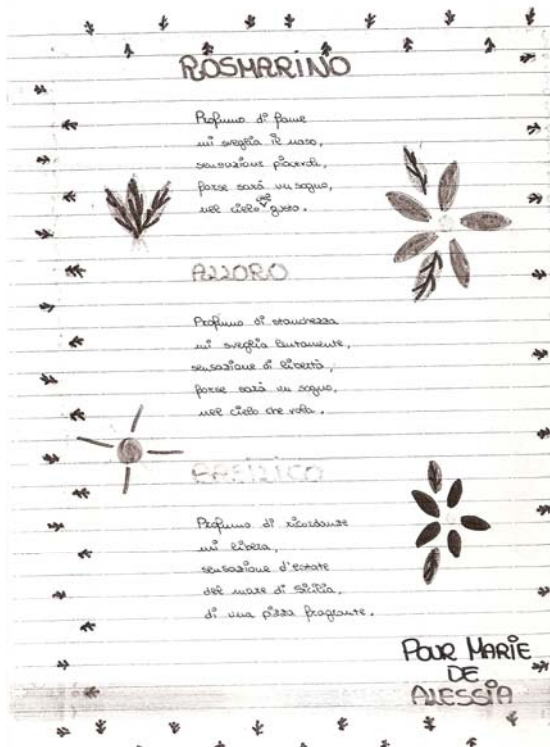 ROSMARINO
Profumo di fame
mi sveglia il naso,
sensazione
forse sarà un sogno,
nel cielo che gusto.
ALLORO
Profumo di stanchezza
mi sveglia lentamente,
sensazione di libertà,
forse sarà un sogno,
nel cielo che vola.
BASILICO
Profumo di
mi libera,
sensazione d'estate
del mare di Sicilia,
di una pizza fragrante.
POUR MARIE
DE
ALESSIA